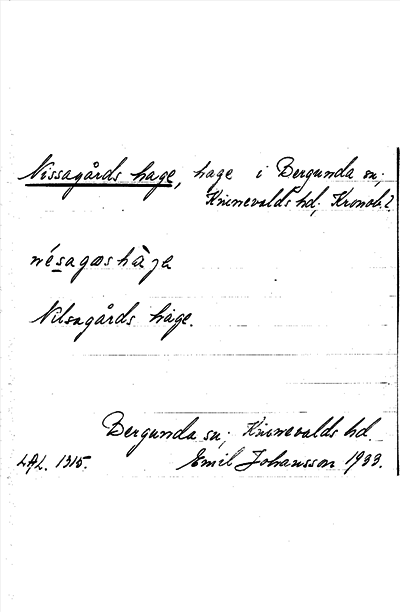 Nissagårds hage, hage i Bergunda sn;
Kinnevalds hd, Kronob. l.
nésagɷshàɟe
Nilsagårds hage.
Bergunda sn; Kinnevalds hd.
LAL. 1315. Emil Johansson 1933.